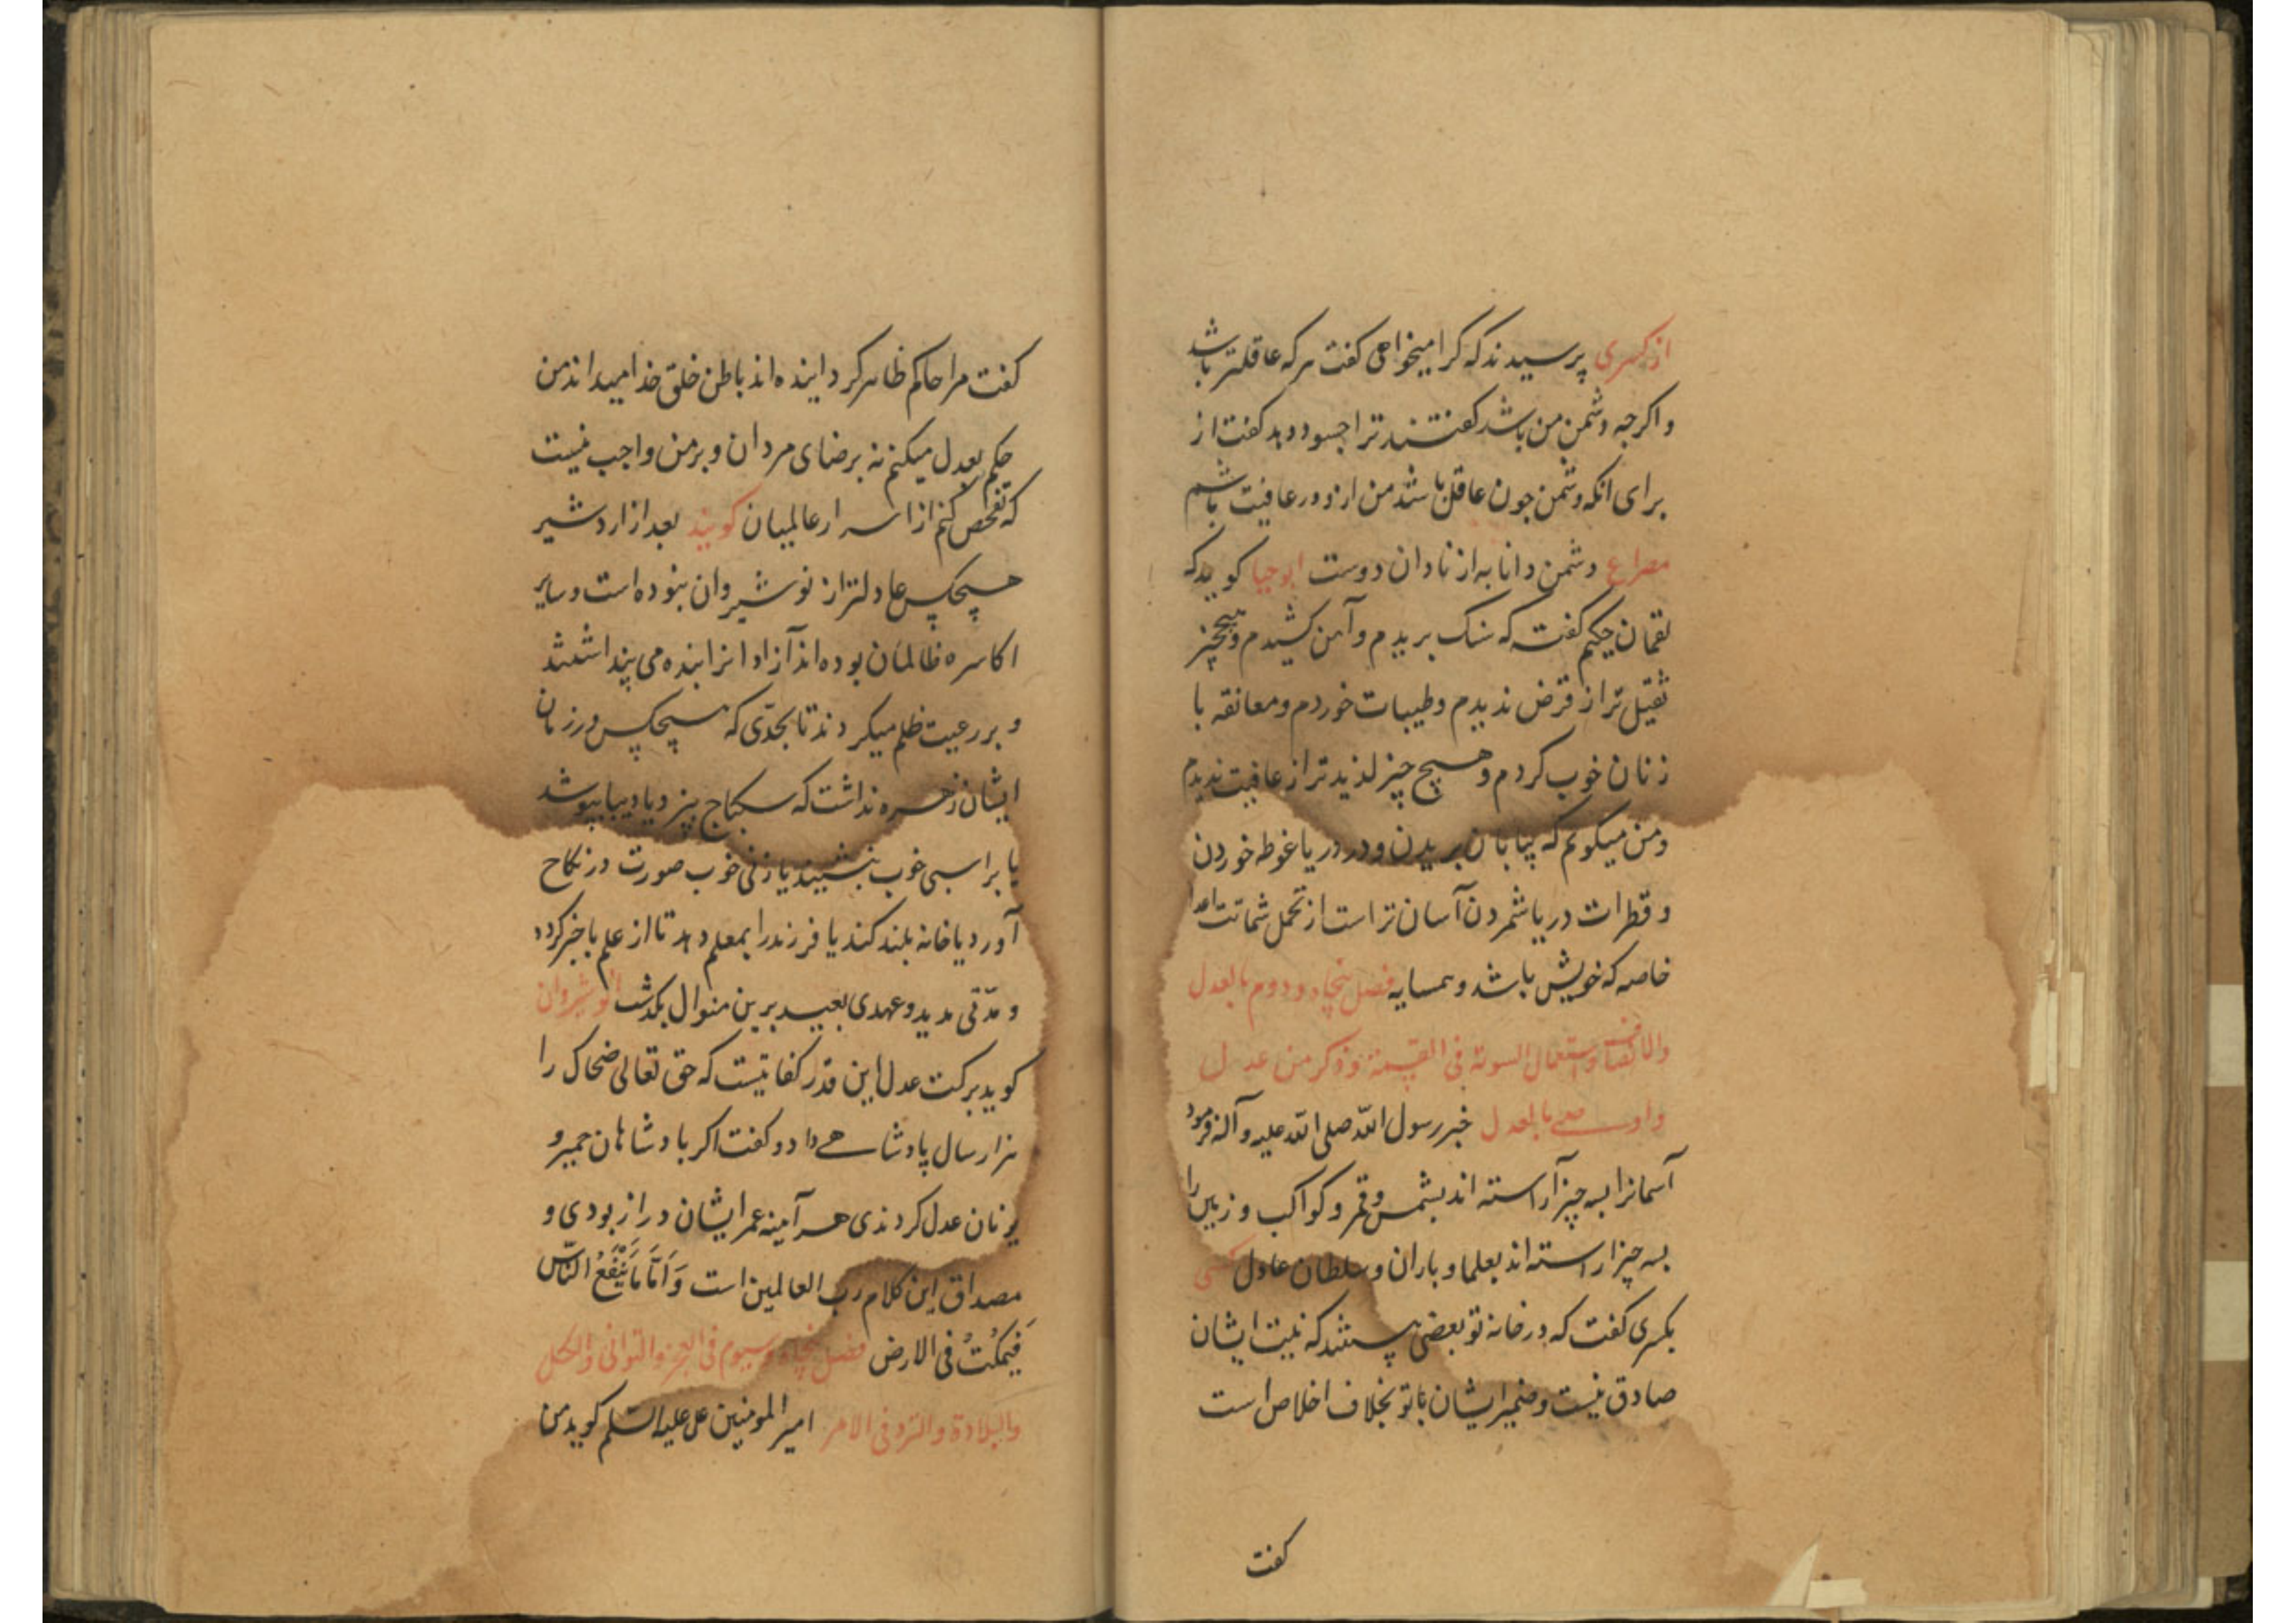 از کسری پرسیدند که کرا میخواهی کفت هرکه عاقلتر باشد
و اکرچه دشمن من باشد کفتند ترا چسود دهد کفت از
برای انکه دشمن چون عاقل باشد من ازو در عافیت باشم
مصراع دشمن دانا به از نادان دوست ابوحیا کوید که
لقمان حکیم کفت که سنک بریدم و آهن کشیدم و هیچ چیز
ثقیل تر از قرض ندیدم و طیبات خوردم و معانقه با
زنان خوب کردم و هیچ چیز لذیدتر از عافیت ندیدم
و من میکویم که بیابان بریدن و در دریا غوطه خوردن
و قطرات دریا شمردن آسان تر است از تحمل شماتت اعدا
خاصه که خویش باشد و همسایه فصل پنجاه و دوم بالعدل
والانصاف واستعمال السویة فی القسمة و ذکر من عدل
بالعدل خبر رسول الله صلی الله علیه و آله فرمود
آسمانرا بسه چیز آراسته اند بشمس و قمر و کواکب و زمین را
بسه چیز اراسته اند بعلما و باران و سلطان عادل کسی
بکسری کفت که در خانه تو بعضی هستند که نیت ایشان
صادق نیست و ضمیر ایشان با تو بخلاف اخلاص است
کفت
کفت مرا حاکم ظاهر کرداینده اند باطن خلق خدا میداند من
حکم بعدل میکنم نه برضای مردان و بر من واجب نیست
که تفحص کنم از اسرار عالمیان کویند بعد از اردشیر
هیچکس عادلتر از نوشیروان بنوده است و سایر
اکاسره ظالمان بوده اند آزادانرا بنده می پنداشتند
و بر رعیت ظلم میکردند تا بحدّی که هیچکس در زمان
ایشان زهره نداشت که سکباج پزد یا دیبا بپوشد
یا بر اسبی خوب نشیند یا زنی خوب صورت در نکاح
آورد یا خانه بلند کند یا فرزند را بمعلم دهد تا از علم باخبر کردد
و مدّتی مدید و عهدی بعید برین منوال بکذشت انوشیروان
کوید برکت عدل این قدر کفایتست که حق تعالی ضحاک را
هزار سال پادشاهی داد و کفت اکر بادشاهان حمیر و
یونان عدل کردندی هر آینه عمر ایشان دراز بودی و
مصداق این کلام رب العالمین است وَاَمَّا مَا یَنْفَعُ النَّاسَ
فَیَمْکُثُ فی الارض فصل پنجاه و سیوم فی العجز والتوانی والکسل
والبلادة والتردد فی الامر امیر المومنین علی علیه السلم کوید من